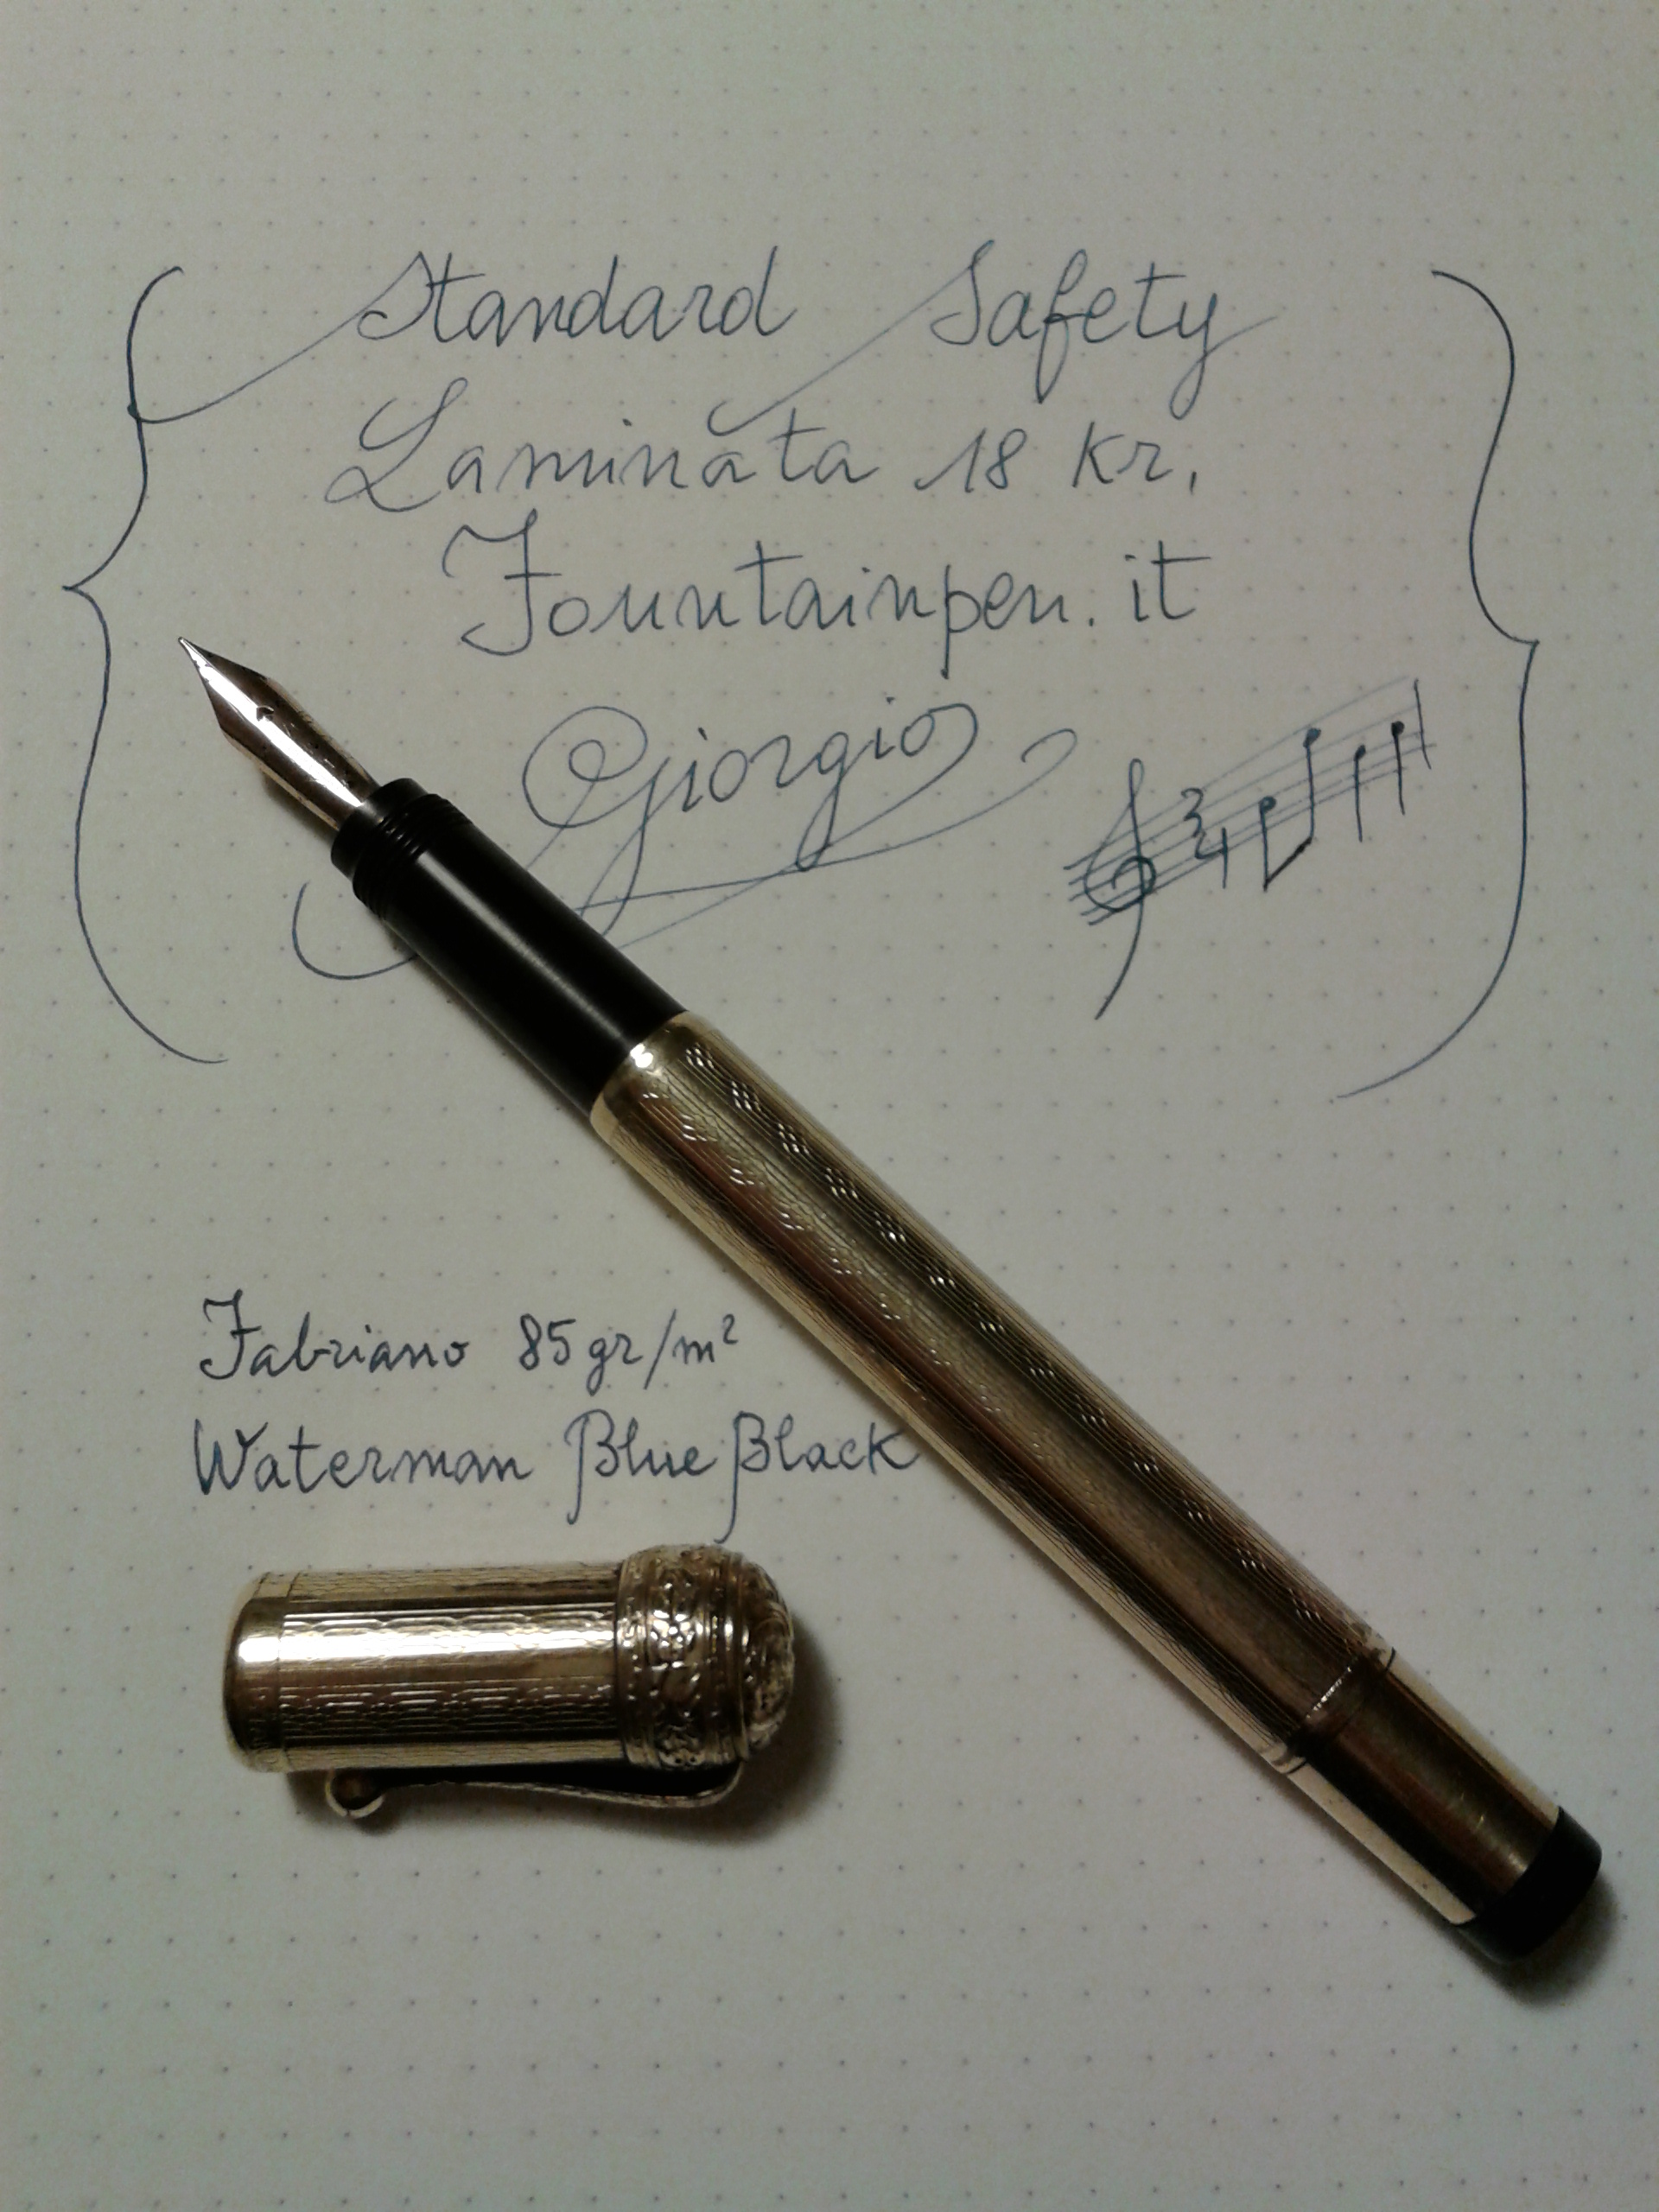 Standard Safety
Laminata 18 Kr.
Fountainpen.it
Giorgio
3
4
Fabriano 85 gr/m²
Waterman Blue Black